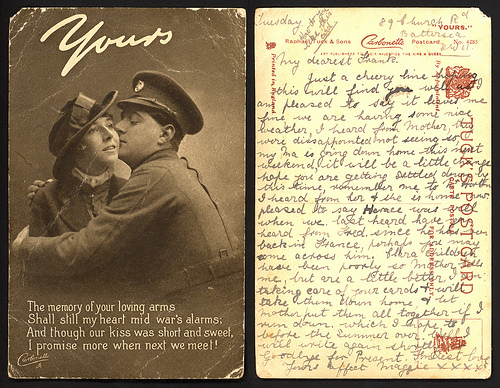 Yours
The memory of your loving arms
Shall still my heart mid war's alarms;
And though our kiss was short and sweet,
I promise more when next we meet!
Carbonette
Tuesday
89 Church Rd
Battersea
"YOURS."
Raphael Tuck & Sons Carbonette Postcard No. 4285
Printed in England
TUCK'S POST CARD
My dearest Frank.
Just a cheery line hoping
this will find you well
and pleased to say it leaves me
fine we are having some nice
weather, I heard from Mother, they
were disappointed not seeing
my Ma is going down home this next
weekend, it will be a little change
hope you are getting settled down by
this time, remember me to
I heard from her & she is home now
pleased to say Horace was
when we last heard have
heard from Fred, since he has been
back in France, perhaps you may
come across him, Clara's children
have been poorly so Mother tells
me, but are a little better. I am
taking care of your cards & will
take them down home & let
mother put them all together if I
run down, which I hope to
before the Summer over, I
will write again shortly
Goodbye for Present, Fondest love
Yours affect Maggie xxxx